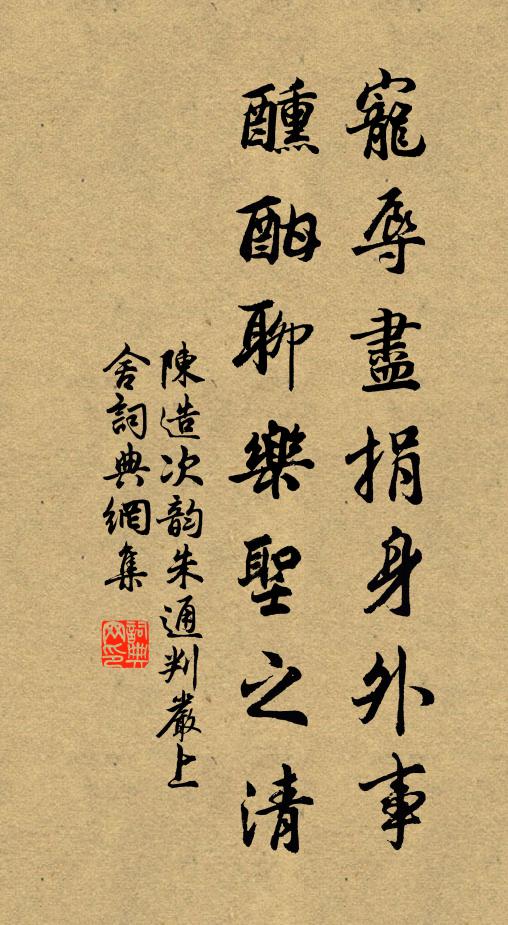 寵辱盡捐身外事
醺酣聊樂聖之清
陳造次韵朱通判嚴上
舍詞典網集
詞典網印